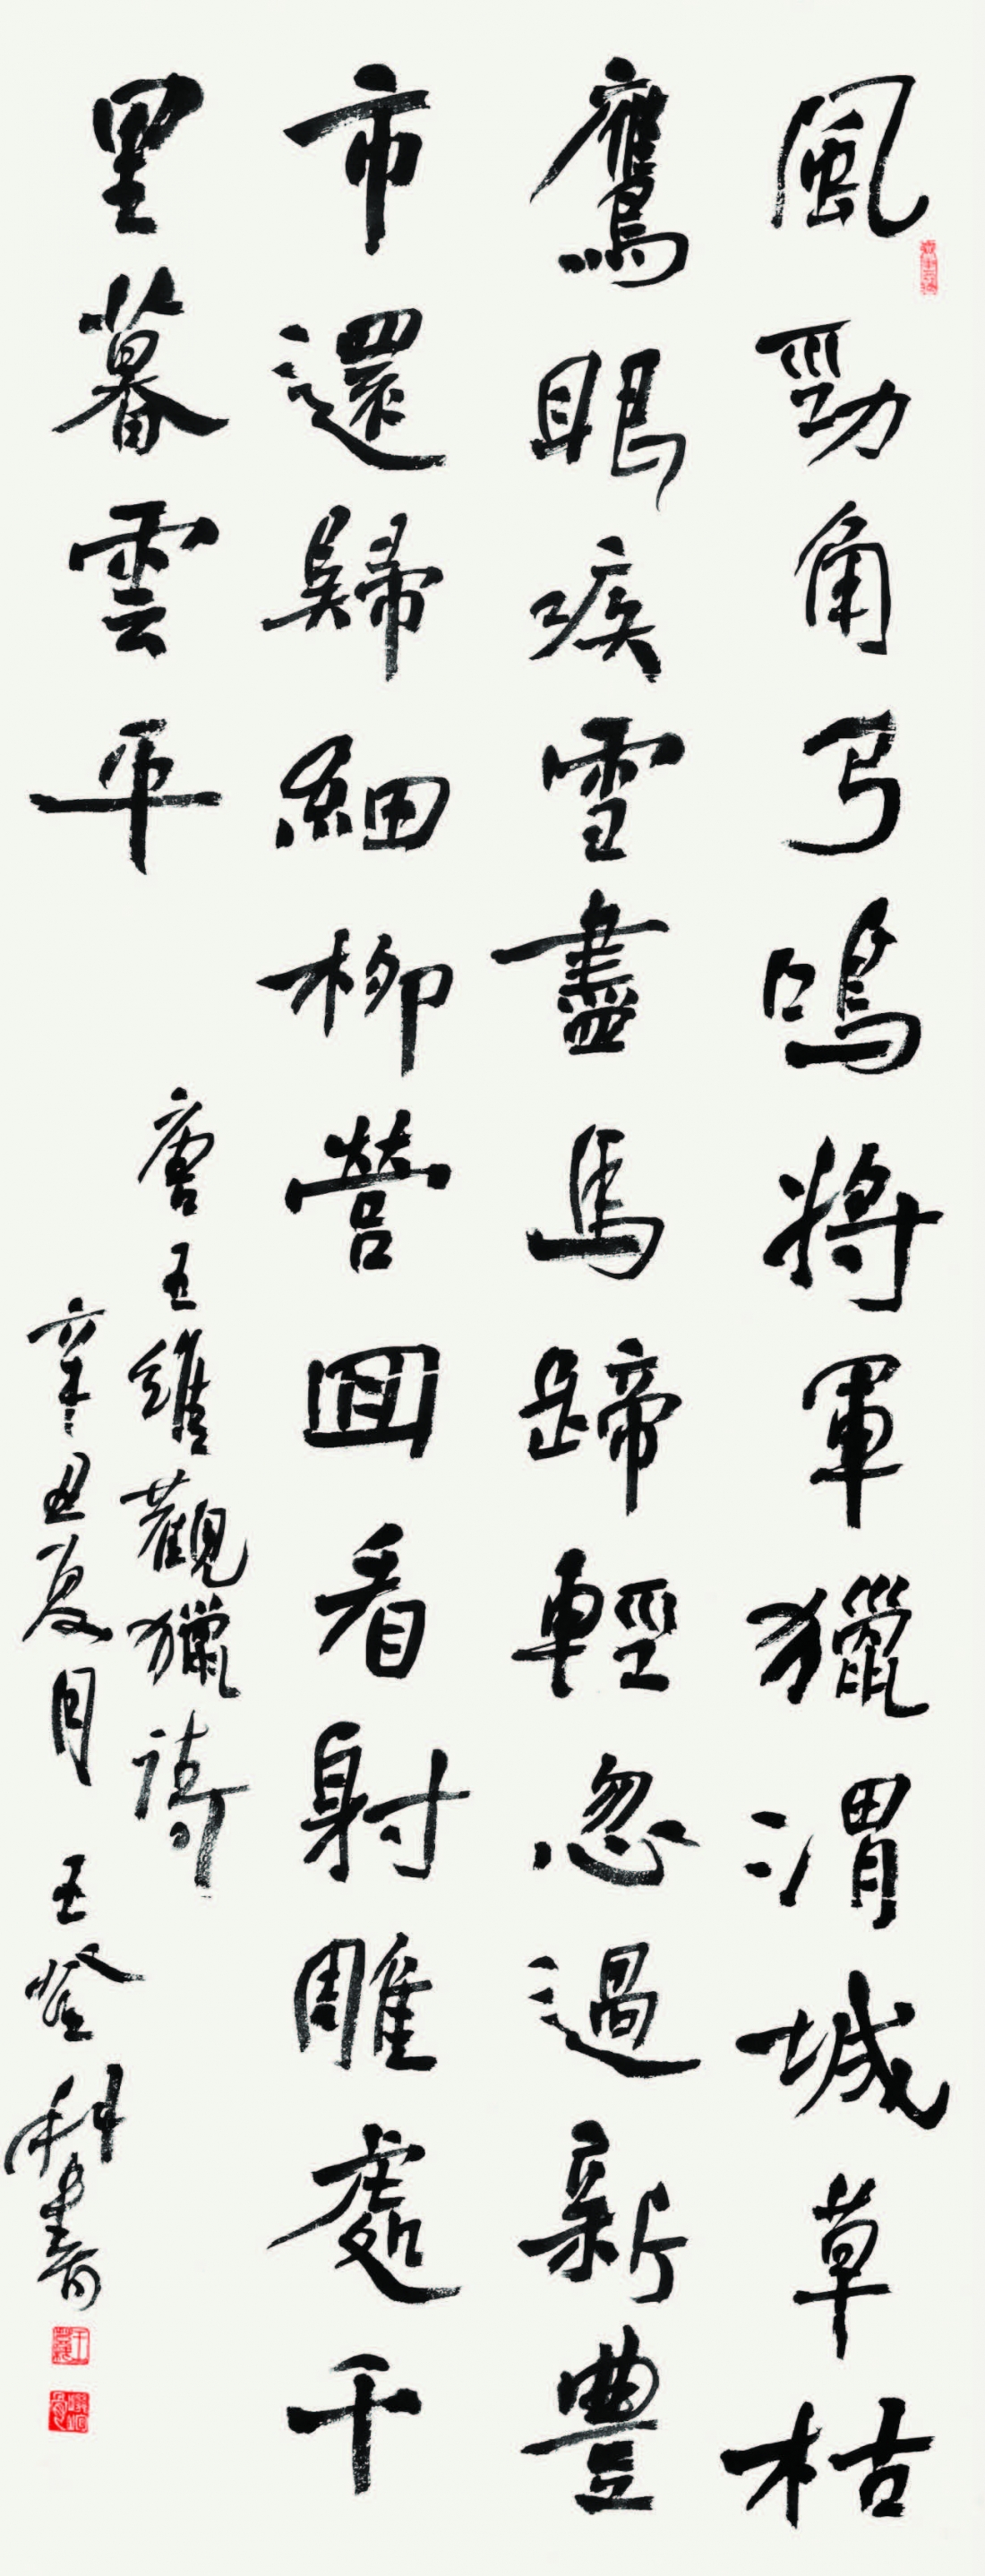 風勁角弓鳴將軍獵渭城草枯
鷹眼疾雪盡馬蹄輕忽過新豐
市還歸細柳營回看射雕處千
里暮雲平
唐王維觀獵詩
辛丑夏月王登科書